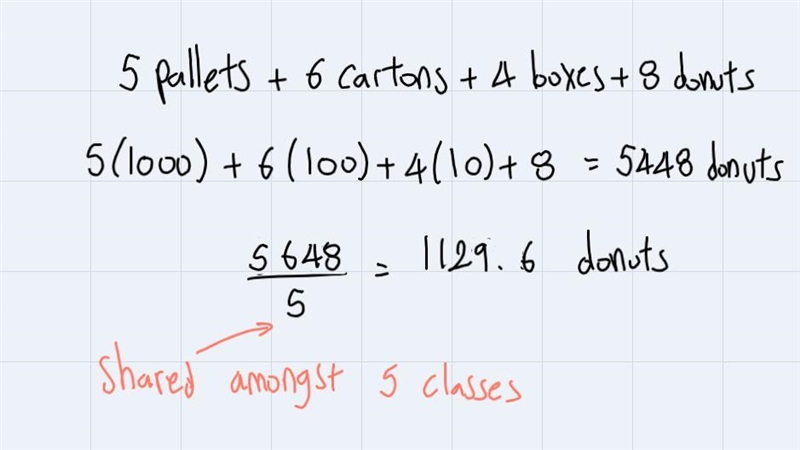 5 pallets + 6 cartons + 4 boxes + 8 donuts
5(1000) + 6(100) + 4(10) + 8 = 5448 donuts
5648
5
= 1129.6 donuts
Shared amongst 5 classes